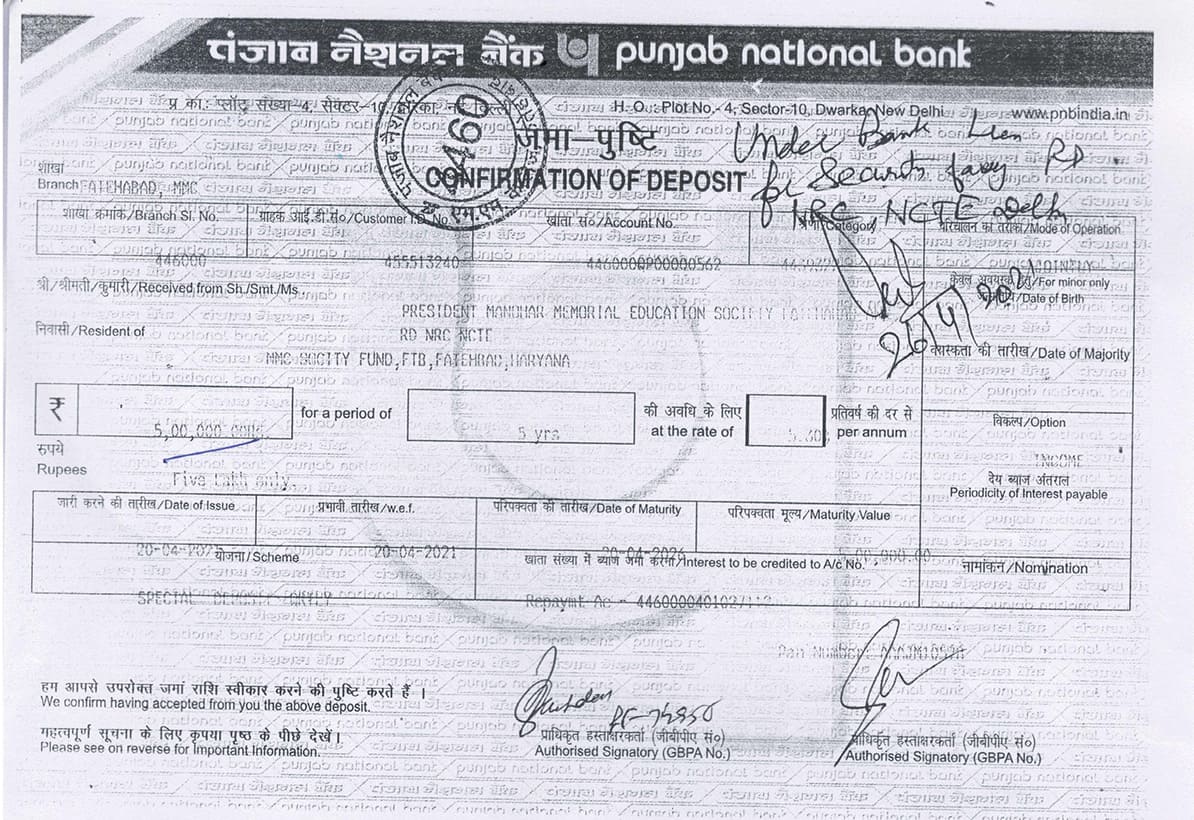 पंजाब नैशनल बैंक punjab national bank
प्र का.: प्लॉट संख्या-4, सेक्टर-10, द्वारका, नई दिल्ली H. O.: Plot No.- 4, Sector-10, Dwarka, New Delhi www.pnbindia.in
4460
जमा पुष्टि
CONFIRMATION OF DEPOSIT
Under Bank Lien
for Security RD
NRC, NCTE Delhi
26/4/2021
शाखा
Branch FATEHABAD, MMC
शाखा क्रमांक/Branch Sl. No. ग्राहक आई.डी.सं०/Customer I.D. No. खाता सं०/Account No. श्रेणी/Category परिचालन का तरीका/Mode of Operation
446000 455513240 446000QP00000562 JOINTLY
श्री/श्रीमती/कुमारी/Received from Sh./Smt./Ms. केवल अवयस्कों हेतु/For minor only
/Date of Birth
PRESIDENT MANOHAR MEMORIAL EDUCATION SOCIETY FATEHABAD
निवासी/Resident of RD NRC NCTE
वयस्कता की तारीख/Date of Majority
MMC SOCITY FUND,FTB,FATEHBAD,HARYANA
₹ 5,00,000.00 for a period of 5 yrs की अवधि के लिए at the rate of प्रतिवर्ष की दर से per annum
विकल्प/Option
INCOME
रुपये
Rupees Five Lakh only.
देय ब्याज अंतराल
Periodicity of Interest payable
जारी करने की तारीख/Date of Issue प्रभावी तारीख/w.e.f. परिपक्वता की तारीख/Date of Maturity परिपक्वता मूल्य/Maturity Value
20-04-2021 20-04-2021 20-04-2026 5,00,000.00
योजना/Scheme खाता संख्या में ब्याज जमा करना/Interest to be credited to A/c No. नामांकन/Nomination
SPECIAL DEPOSIT Repaymt Ac -
Pan Number:
हम आपसे उपरोक्त जमा राशि स्वीकार करने की पुष्टि करते हैं ।
We confirm having accepted from you the above deposit.
महत्वपूर्ण सूचना के लिए कृपया पृष्ठ के पीछे देखें।
Please see on reverse for Important Information.
प्राधिकृत हस्ताक्षरकर्ता (जीबीपीए सं०) प्राधिकृत हस्ताक्षरकर्ता (जीबीपीए सं०)
Authorised Signatory (GBPA No.) Authorised Signatory (GBPA No.)